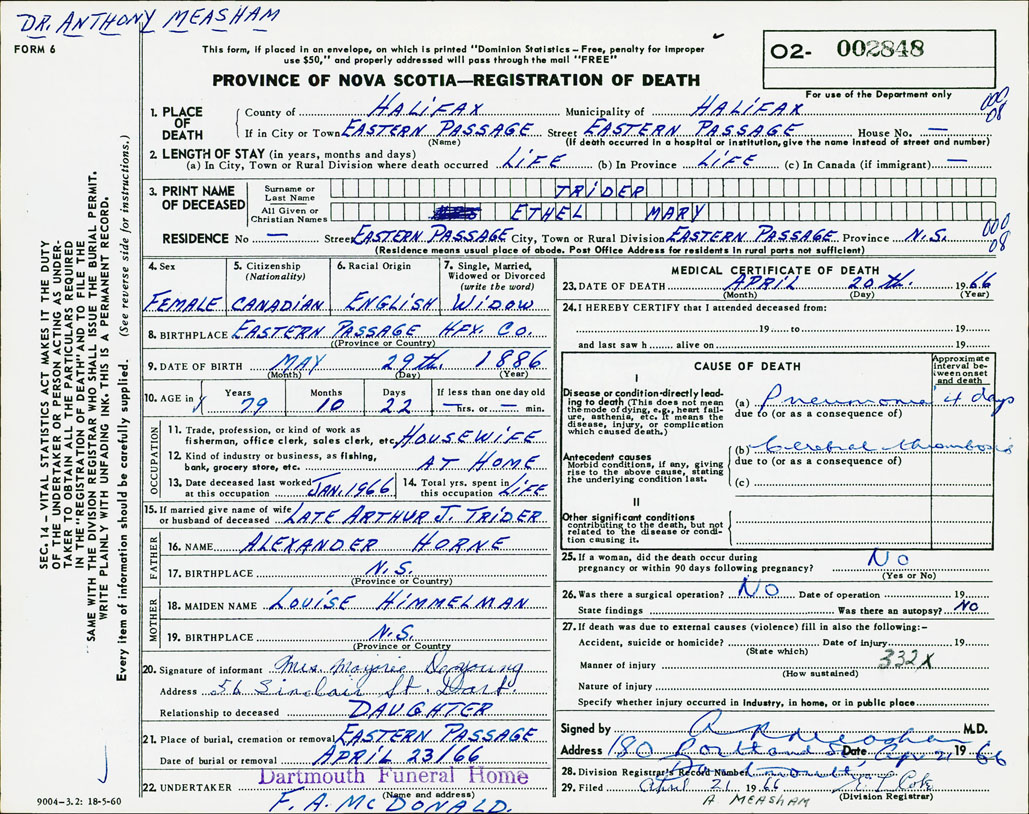 DR. ANTHONY MEASHAM
FORM 6
This form, if placed in an envelope, on which is printed "Dominion Statistics – Free, penalty for improper
use $50," and properly addressed will pass through the mail "FREE"
O2- 002848
For use of the Department only
PROVINCE OF NOVA SCOTIA—REGISTRATION OF DEATH
1. PLACE OF DEATH
County of HALIFAX Municipality of HALIFAX
000 08
If in City or Town EASTERN PASSAGE Street EASTERN PASSAGE House No. —
(Name) (If death occurred in a hospital or institution, give the name instead of street and number)
2. LENGTH OF STAY (in years, months and days)
(a) In City, Town or Rural Division where death occurred LIFE (b) In Province LIFE (c) In Canada (if immigrant) —
3. PRINT NAME OF DECEASED
Surname or Last Name TRIDER
All Given or Christian Names ETHEL MARY
RESIDENCE No — Street EASTERN PASSAGE City, Town or Rural Division EASTERN PASSAGE Province N.S.
000 08
(Residence means usual place of abode. Post Office Address for residents in rural parts not sufficient)
4. Sex
FEMALE
5. Citizenship
(Nationality)
CANADIAN
6. Racial Origin
ENGLISH
7. Single, Married,
Widowed or Divorced
(write the word)
WIDOW
8. BIRTHPLACE EASTERN PASSAGE HFX. CO.
(Province or Country)
9. DATE OF BIRTH MAY 29th. 1886
(Month) (Day) (Year)
10. AGE in Years 79 Months 10 Days 22 If less than one day old
— hrs. or — min.
OCCUPATION
11. Trade, profession, or kind of work as
fisherman, office clerk, sales clerk, etc. HOUSEWIFE
12. Kind of industry or business, as fishing,
bank, grocery store, etc. AT HOME
13. Date deceased last worked
at this occupation JAN. 1966
14. Total yrs. spent in
this occupation LIFE
15. If married give name of wife
or husband of deceased LATE ARTHUR J. TRIDER
FATHER
16. NAME ALEXANDER HORNE
17. BIRTHPLACE N.S.
(Province or Country)
MOTHER
18. MAIDEN NAME LOUISE HIMMELMAN
19. BIRTHPLACE N.S.
(Province or Country
20. Signature of informant Mrs. Marjorie DeYoung
Address 56 Sinclair St. Dart.
Relationship to deceased DAUGHTER
21. Place of burial, cremation or removal EASTERN PASSAGE
Date of burial or removal APRIL 23/66
Dartmouth Funeral Home
22. UNDERTAKER
(Name and address)
F. A. McDONALD.
MEDICAL CERTIFICATE OF DEATH
23. DATE OF DEATH APRIL 20th. 1966
(Month) (Day) (Year)
24. I HEREBY CERTIFY that I attended deceased from:
19 to 19
and last saw h alive on 19
CAUSE OF DEATH
Approximate
interval be-
tween onset
and death
I
Disease or condition directly lead-
ing to death (This does not mean
the mode of dying, e.g., heart fail-
ure, asthenia, etc. It means the
disease, injury, or complication
which caused death.)
(a) Pneumonia 4 days
due to (or as a consequence of)
(b) Cerebral thrombosis
due to (or as a consequence of)
Antecedent causes
Morbid conditions, if any, giving
rise to the above cause, stating
the underlying condition last.
(c)
II
Other significant conditions
contributing to the death, but not
related to the disease or condi-
tion causing it.
25. If a woman, did the death occur during
pregnancy or within 90 days following pregnancy? NO
(Yes or No)
26. Was there a surgical operation? NO Date of operation 19
State findings Was there an autopsy? NO
27. If death was due to external causes (violence) fill in also the following:–
Accident, suicide or homicide? Date of injury 19
(State which)
332X
Manner of injury
(How sustained)
Nature of injury
Specify whether injury occurred in industry, in home, or in public place
Signed by A R Measham M.D.
Address 180 Portland St, Date Apr 21 1966
Dartmouth
28. Division Registrar's Record Number
29. Filed April 21 1966
A MEASHAM
(Division Registrar)
SEC. 14 – VITAL STATISTICS ACT MAKES IT THE DUTY
OF THE UNDERTAKER OR PERSON ACTING AS UNDER-
TAKER TO OBTAIN ALL THE PARTICULARS REQUIRED
IN THE "REGISTRATION OF DEATH" AND TO FILE THE
SAME WITH THE DIVISION REGISTRAR WHO SHALL ISSUE THE BURIAL PERMIT.
WRITE PLAINLY WITH UNFADING INK. THIS IS A PERMANENT RECORD.
Every item of information should be carefully supplied. (See reverse side for instructions.)
9004–3.2: 18-5-60